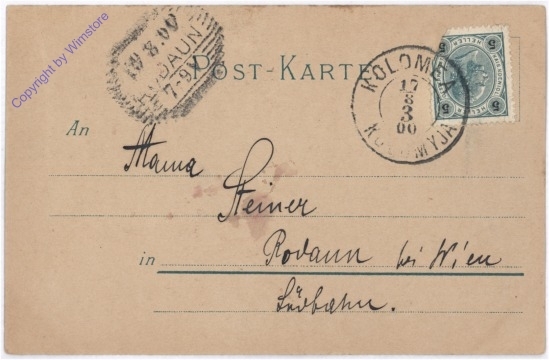 Copyright by Wimstore
19 8 00
RODAUN
7-9V
POST-KARTE
KOLOMEA
17
3
00
KOLOMYJA
5 HELLER 5
5 5
An Mama
Steiner
in Rodaun bei Wien
Südbahn.